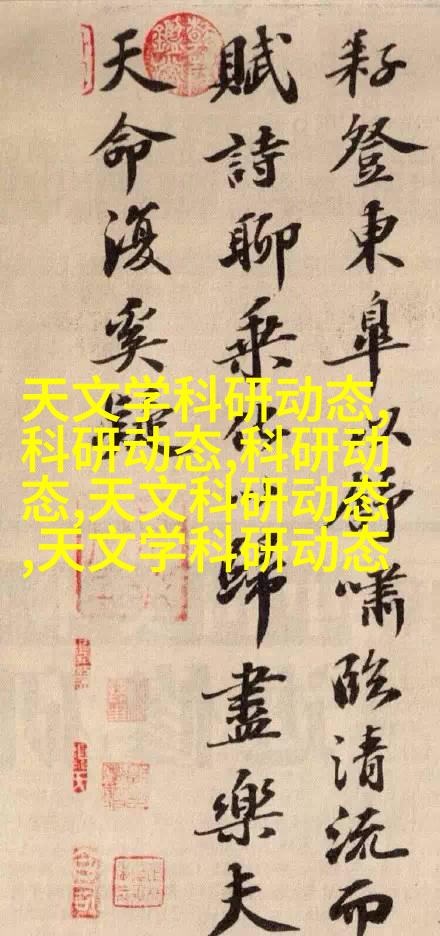 耔登東皐以舒嘯臨清流而
賦詩聊乘化以歸盡樂夫
天命復奚疑
天文学科研动态,
科研动态,科研动
态,天文科研动态
,天文学科研动态